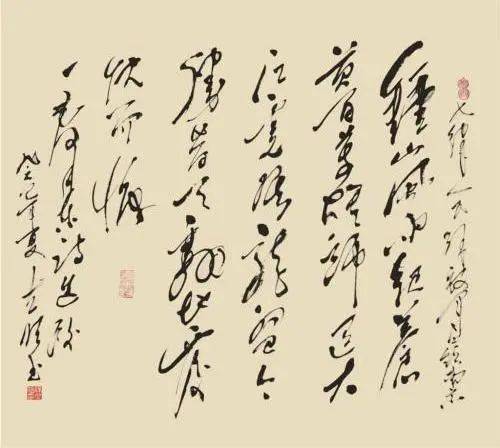 七律 人民解放军占领南京
鍾山風雨起蒼
黄百萬雄師過大
江虎踞龍盘今
勝昔天翻地覆
慨而慷
毛泽东诗
癸巳年夏 书